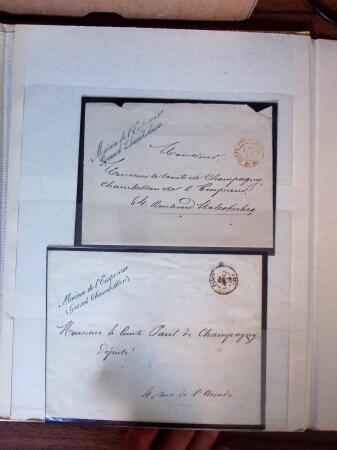 Maison de l'Empereur
Grand Chambellan
Monsieur
Monsieur le Comte de Champagny
Chambellan de l'Empereur
64 Boulevard Malesherbes
Maison de l'Empereur
(Grand Chambellan)
Monsieur le Comte Paul de Champagny
député
4 rue de l'Arcade